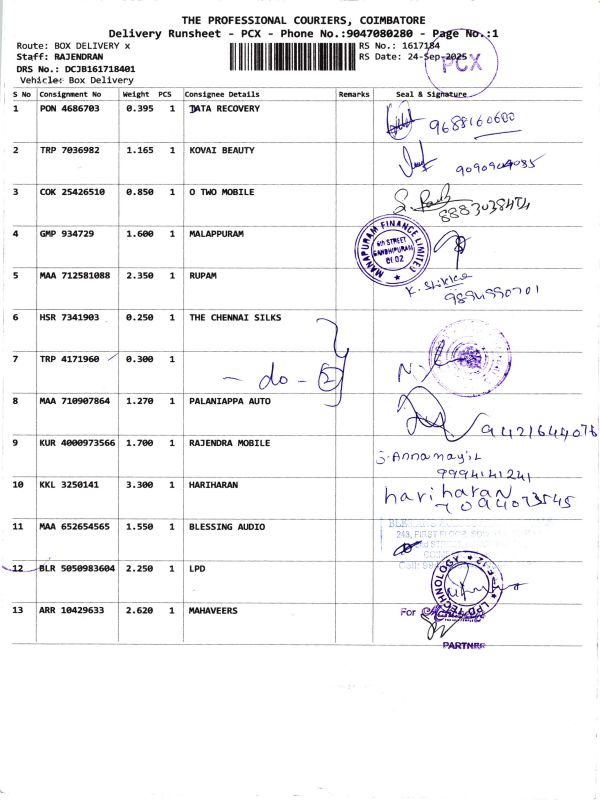 THE PROFESSIONAL COURIERS, COIMBATORE
Delivery Runsheet - PCX - Phone No.:9047080280 - Page No.:1
Route: BOX DELIVERY x
RS No.: 1617184
Staff: RAJENDRAN
RS Date: 24-Sep-2025
PCX
DRS No.: DCJB161718401
Vehicle: Box Delivery
S No Consignment No Weight PCS Consignee Details Remarks Seal & Signature
1 PON 4686703 0.395 1 DATA RECOVERY 9688160600
2 TRP 7036982 1.165 1 KOVAI BEAUTY
3 COK 25426510 0.850 1 O TWO MOBILE
4 GMP 934729 1.600 1 MALAPPURAM
MANAPURAM FINANCE LIMITED
6th STREET
GANDHIPURAM
5 MAA 712581088 2.350 1 RUPAM
6 HSR 7341903 0.250 1 THE CHENNAI SILKS
7 TRP 4171960 0.300 1
- do - 2
8 MAA 710907864 1.270 1 PALANIAPPA AUTO 9421644076
9 KUR 4000973566 1.700 1 RAJENDRA MOBILE
9994141241
10 KKL 3250141 3.300 1 HARIHARAN hariharan
7094073545
11 MAA 652654565 1.550 1 BLESSING AUDIO
243, FIRST FLOOR
12 BLR 5050983604 2.250 1 LPD
LPD TECHNOLOGY
13 ARR 10429633 2.620 1 MAHAVEERS For
PARTNER